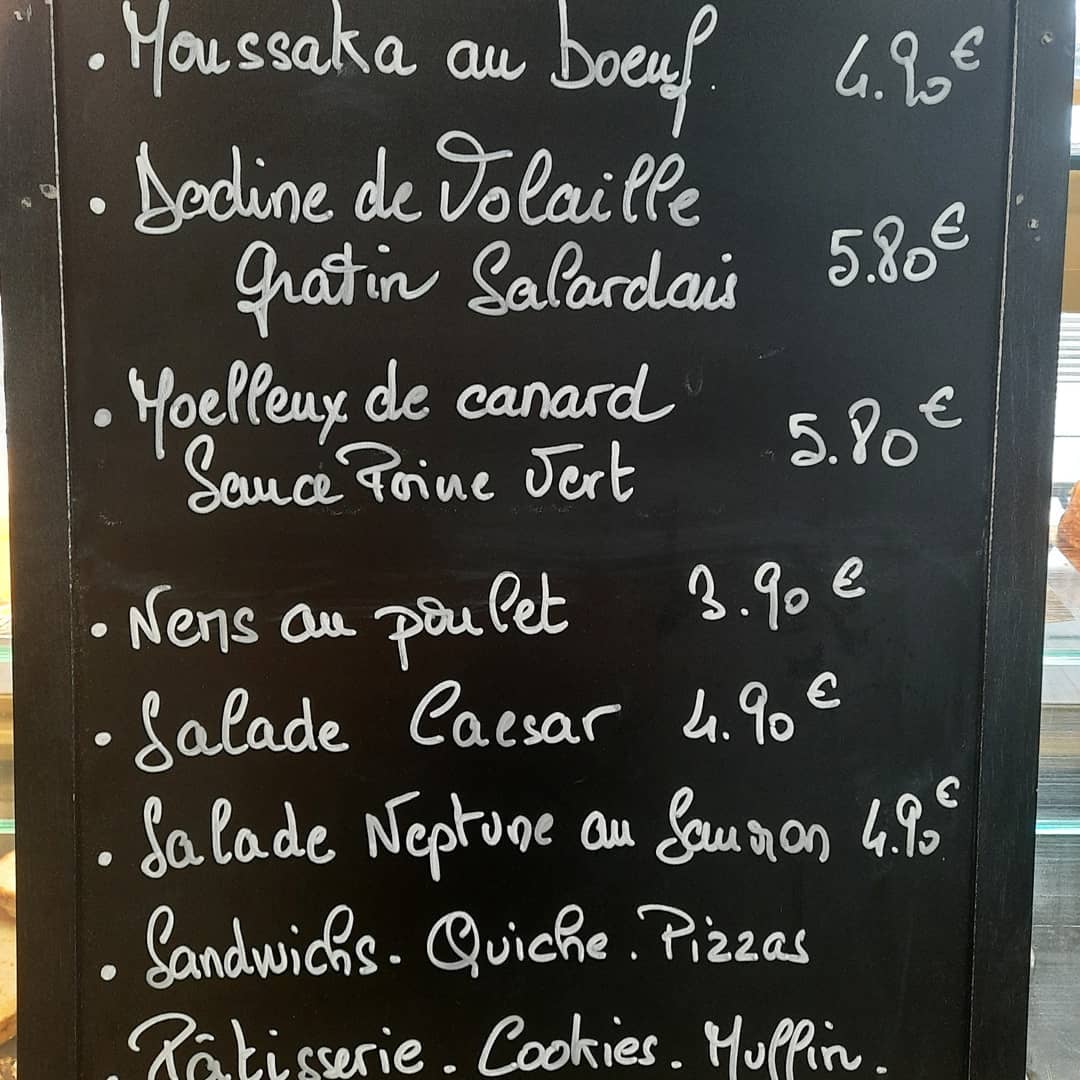 . Moussaka au boeuf. 4.90€
. Dodine de Volaille
gratin Salardais 5.80€
. Moelleux de canard
Sauce Poivre Vert 5.80€
. Nems au poulet 3.90€
. Salade Caesar 4.90€
. Salade Neptune au Saumon 4.90€
. Sandwichs. Quiche. Pizzas
. Pâtisserie. Cookies. Muffin.